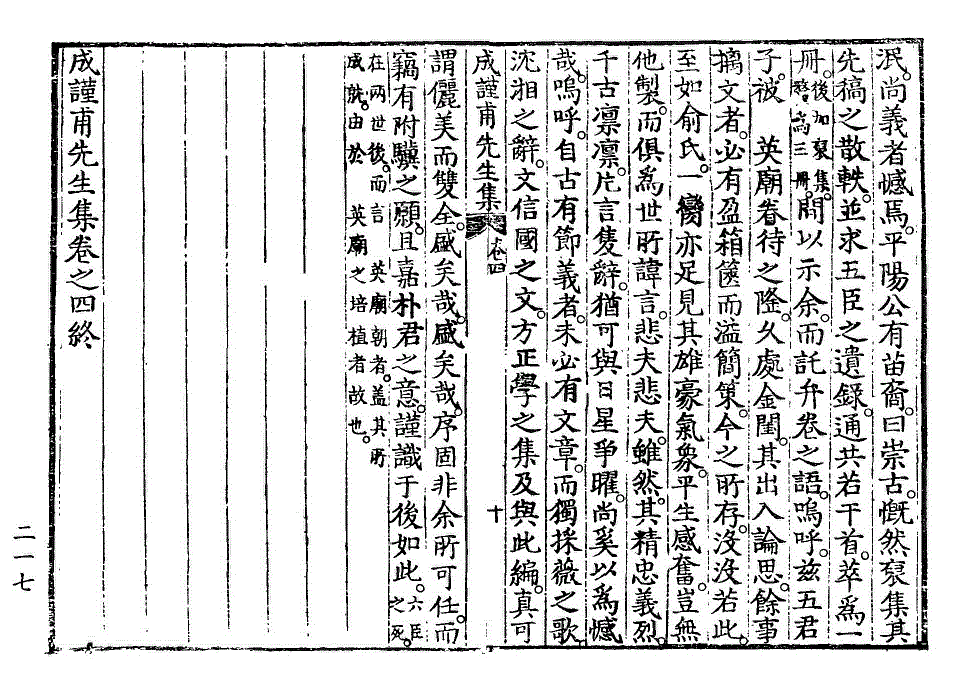 泯。尚義者憾焉。平陽公有苗裔。曰崇古。慨然裒集其
先稿之散軼。並求五臣之遺錄。通共若干首。萃爲一
冊。後加裒集。釐爲三冊。間以示余。而託弁卷之語。嗚呼。玆五君
子。被 英廟眷待之隆。久處金閨。其出入論思。餘事
摛文者。必有盈箱篋而溢簡策。今之所存。沒沒若此。
至如俞氏。一臠亦足見其雄豪氣象。平生感奮。豈無
他製。而俱爲世所諱言。悲夫悲夫。雖然。其精忠義烈。
千古凛凛。片言隻辭。猶可與日星爭曜。尚奚以爲憾
哉。嗚呼。自古有節義者。未必有文章。而獨採薇之歌
沈湘之辭。文信國之文。方正學之集。及與此編。眞可
成謹甫先生集 卷四 十
謂儷美而雙全。盛矣哉。盛矣哉。序固非余所可任。而
竊有附驥之願。且嘉朴君之意。謹識于後如此。六臣之死。
在兩世後。而言 英廟朝者。盖其所
成就。由於 英廟之培植者故也。
成謹甫先生集卷之四終
二一七